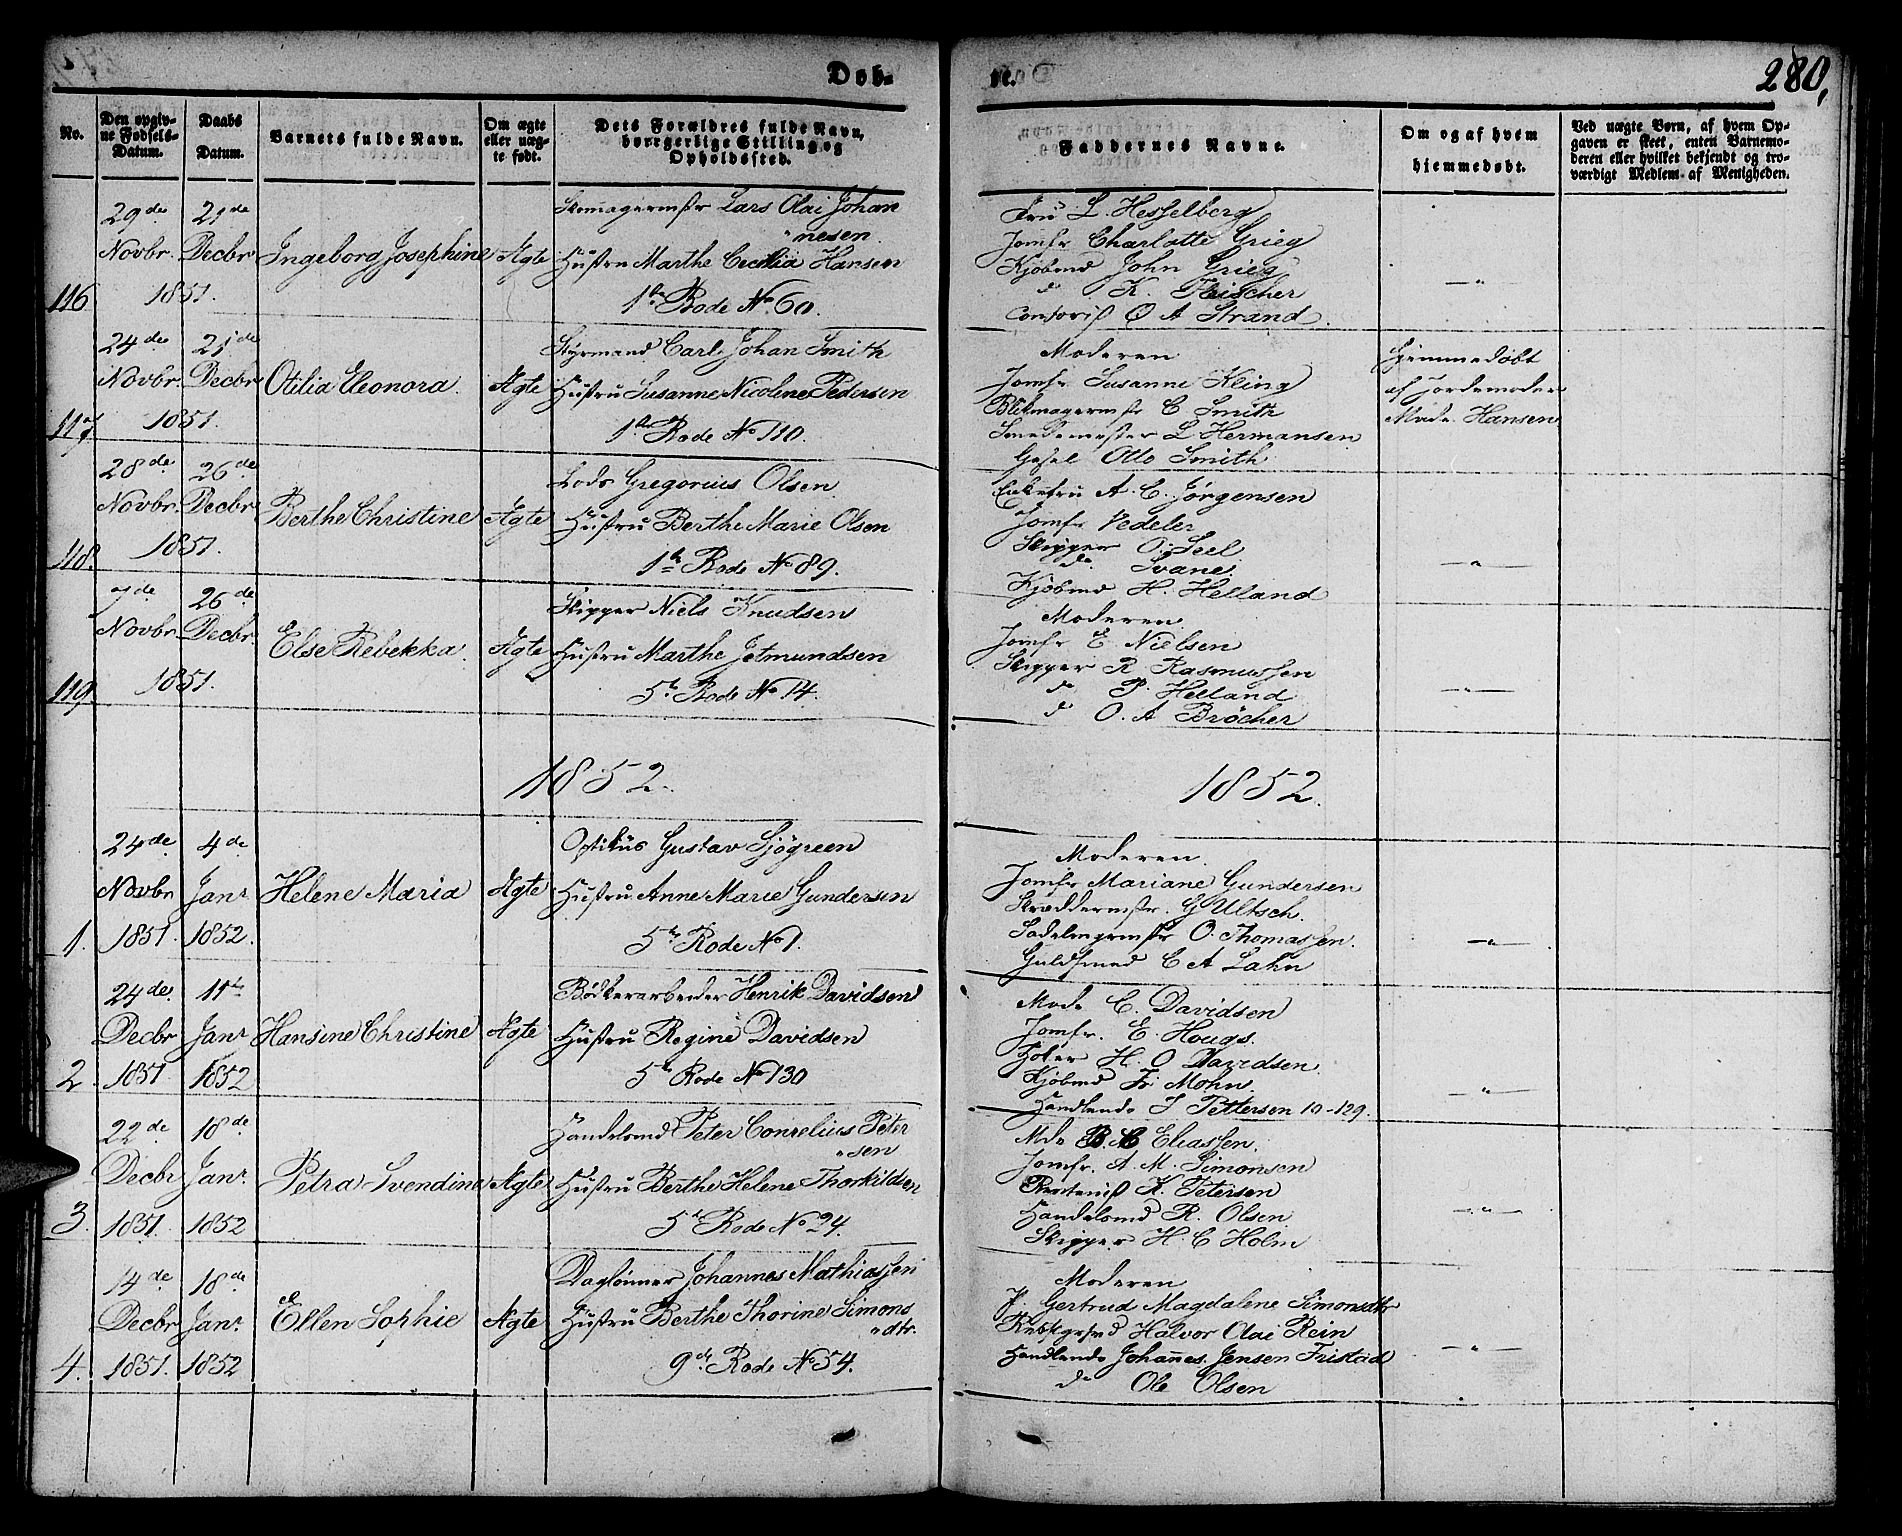 Døb-
te.
280,
No.
Den opgiv-
ne Fødsels-
Datum.
Daabs
Datum.
Barnets fulde Navn.
Om ægte
eller uæg-
te født.
Dets Forældres fulde Navn,
borgerlige Stilling og
Opholdssted.
Faddernes Navne.
Om og af hvem
hjemmedøbt.
Ved uægte Børn, af hvem Op-
gaven er skeet, enten Barnemo-
deren eller hvilket bekjendt og tro-
værdigt Medlem af Menigheden.
116
29de Novbr.
21de Decbr
1851.
Ingeborg Josephine
Ægte
Skomagermstr Lars Olai Johan
"nesen
Hustru Marthe Cecilia Hansen
1ste Rode No 60.
Fru L. Hesselberg
Jomfr Charlotte Grieg
Kjøbmd John Grieg
do K Fleischer
Contorist O A Strand.
-"-
117
24de Novbr.
21de Decbr
1851.
Otilia Eleonora.
Ægte
Styrmand Carl Johan Smith
Hustru Susanne Nicoline Pedersen
1ste Rode No 110.
Moderen
Jomfr Susanne Kling
Blikmagermstr C Smith
Smedemester L Hermansen
Gesel Otto Smith
Hjemmedøbt
af Jordemoder
Mad. Hansen
118.
28de Novbr.
26de Decbr
1851.
Berthe Christine
Ægte
Lods Gregorius Olsen
Hustru Berthe Marie Olsen
1ste Rode No 89.
Enkefru A. C. Jørgensen
Jomfr Vedeler
Skipper O. Seel
do Svane
Kjøbmd H. Helland
-"-
119.
7de Novbr.
26de Decbr.
1851.
Else Rebekka.
Ægte
Skipper Niels Knudsen
Hustru Marthe Jetmundsen
5te Rode No 14.
Moderen
Jomfr E Nielsen
Skipper R Rasmussen
do P. Helland
do O. A Bröcher
-"-
1852.
1852.
1.
24de Novbr 1851.
4de Janr 1852.
Helene Maria
Ægte
Optikus Gustav Sjögreen
Hustru Anne Marie Gundersen
5te Rode No 1.
Moderen
Jomfr Mariane Gundersen
Skræddermstr. G Ultsch.
Sadelmagermstr O. Thomassen.
Guldsmed C A Lahn
-"-
2.
24de Decbr 1851.
11te Janr 1852
Hansine Christine
Ægte
Bødkerarbeider Henrik Davidsen
Hustru Regine Davidsen
5te Rode No 130
Mad. C. Davidsen
Jomfr. E. Hougs.
Høker H. O Davidsen.
Kjøbmd Fr Mohn.
Handlende J Pettersen 10-129.
-"-
3.
22de Decbr 1851.
18de Janr. 1852
Petra Svendine
Ægte
Handelsmd Peter Cornelius Peter
"sen
Hustru Berthe Helene Thorkildsen
5te Rode No 24.
Md. B C Eliassen.
Jomfr. A. M. Simonsen
K. Petersen
Handelsmd R. Olsen
Skipper H. C Holm
-"-
4.
14de Decbr 1851.
18de Janr. 1852
Ellen Sophie
Ægte
Daglønner Johannes Mathiassen
Hustru Berthe Thorine Simons
"dtr.
9de Rode No 54.
Moderen
P. Gertrud Magdalene Simonsdtr
Halvor Olai Rein
Handlende Johannes Jensen Fristad
do Ole Olsen
-"-